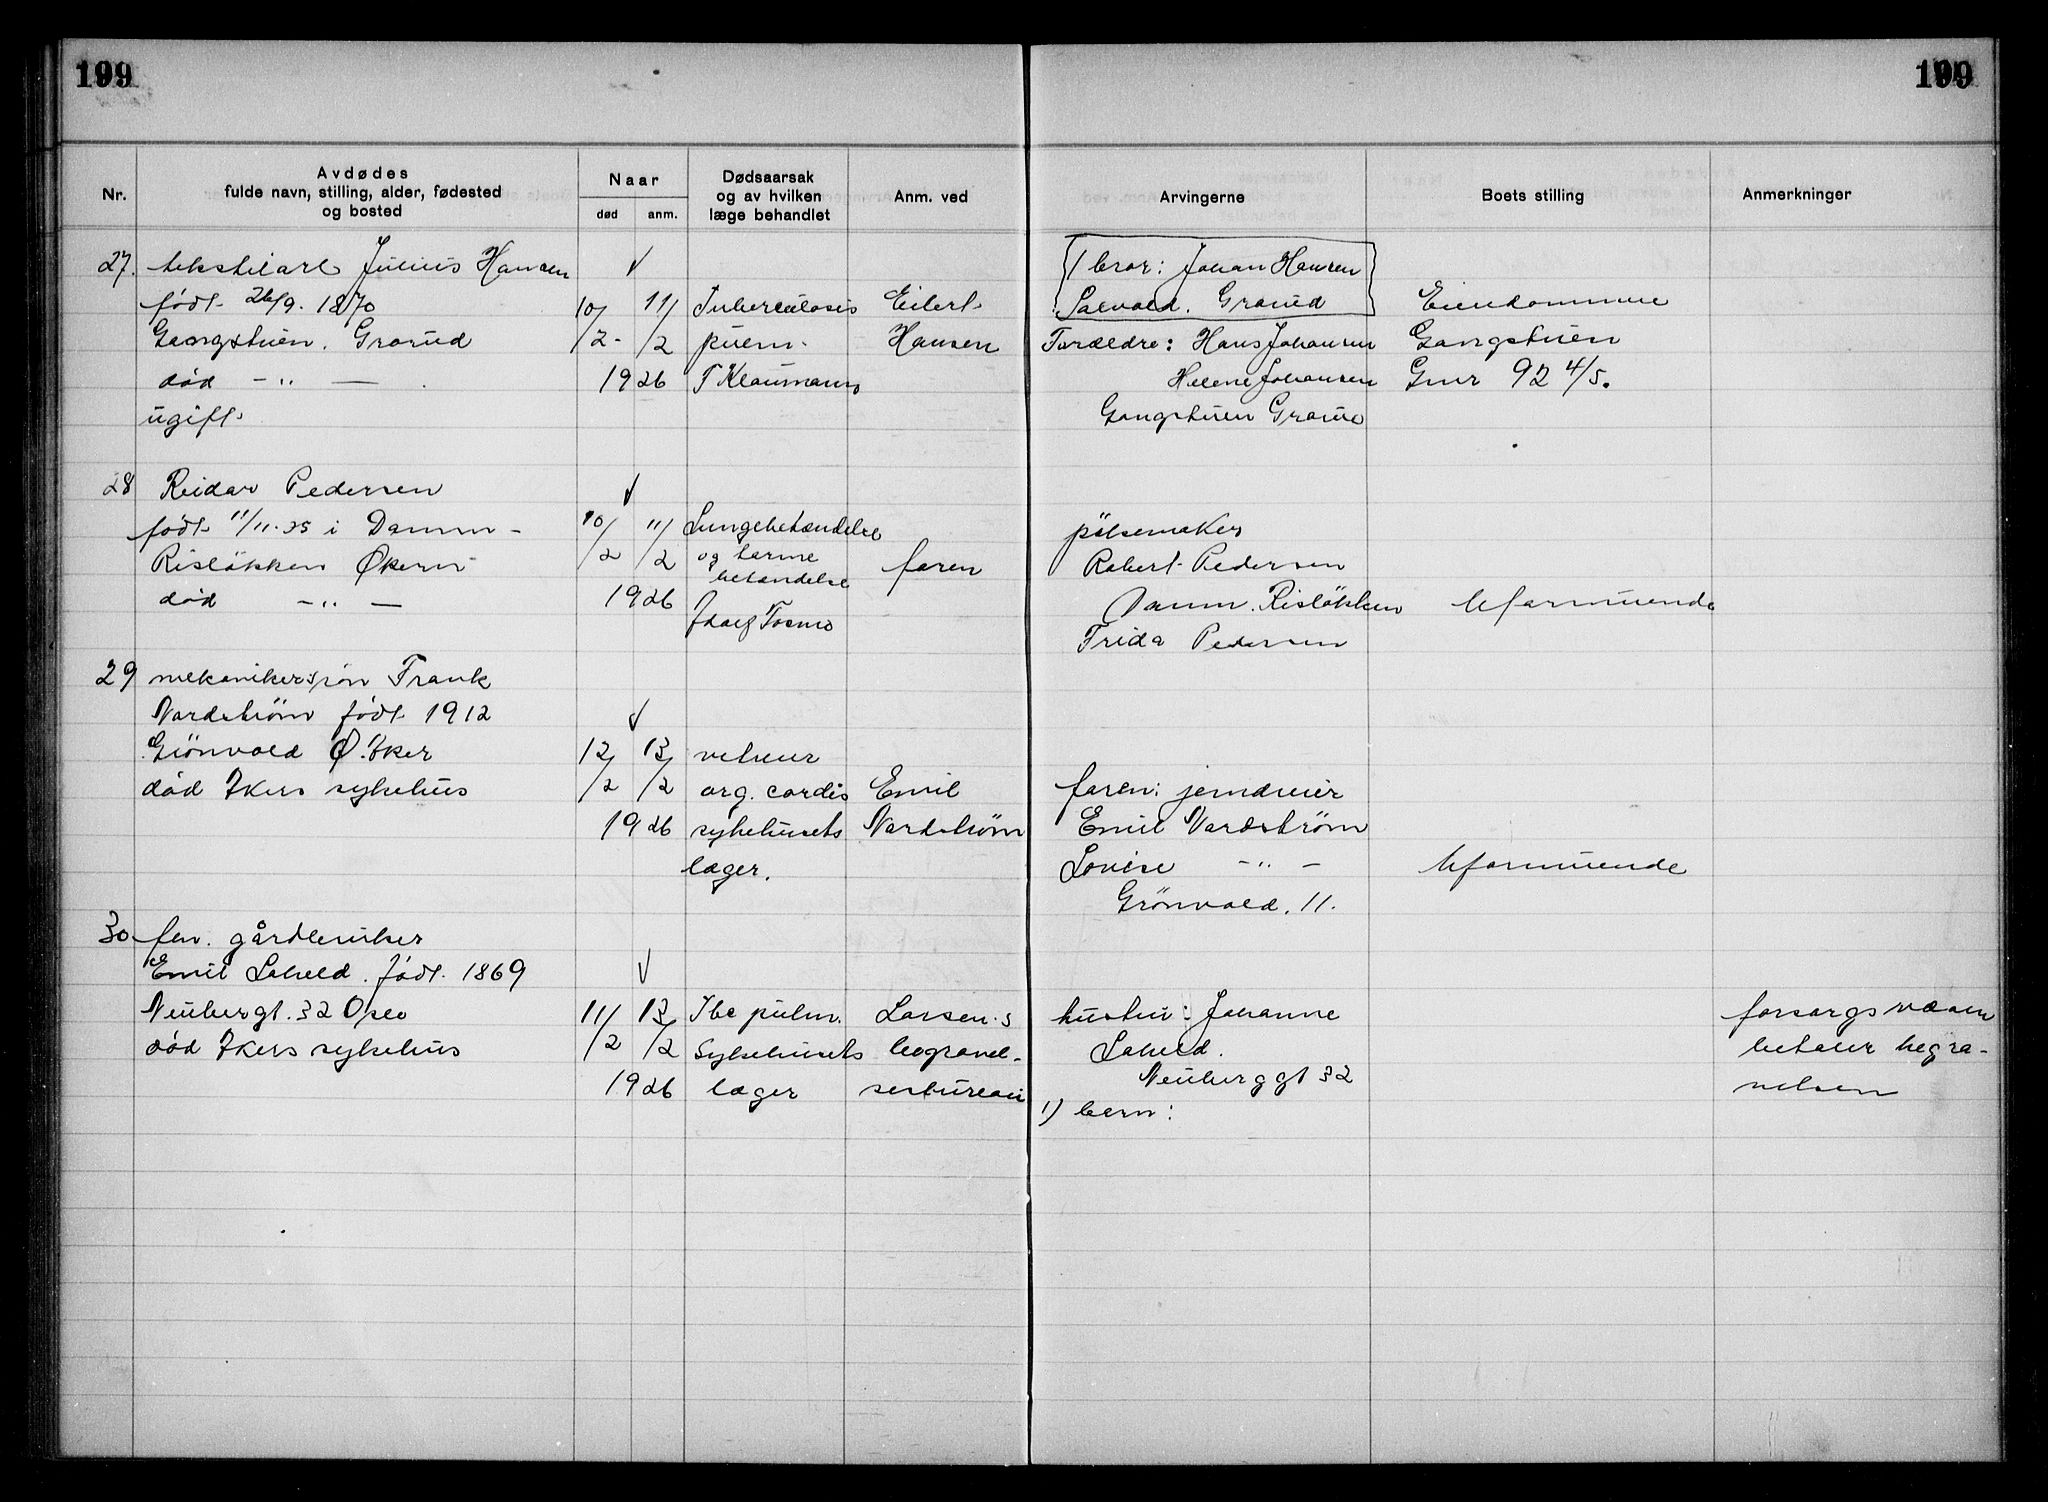 199
199
Nr.
Avdødes
fulde navn, stilling, alder, fødested
og bosted
Naar
død
anm.
Dødsaarsak
og av hvilken
læge behandlet
Anm. ved
Arvingerne
Boets stilling
Anmerkninger
27. tekstilarb Julius Hansen
født 26/9. 1870
Gangstuen. Grorud
død -"-
ugift
10/2- 11/2
1926
Tuberculosis
pulm.
T Klaumann
Eilert
Hansen
1 bror: Johan Hansen
Solvold. Grorud
Foræeldre: Hans Johansen
Helene Johansen
Gangstuen Grorud
Eiendommen
Gangstuen
Gnr 92 4/5.
28 Reidar Pedersen
født 11/11.25 i Damm-
Risløkken Økern
død -"-
10/2 11/2
1926
Lungebetændelse
og tarme
betændelse
faren
pølsemaker
Robert Pedersen
Damm. Risløkken
Frida Pedersen
Uformuende
29 mekanikersøn Frank
Nordstrøm født 1912
Grönvold Ø. Aker
død Akers sykehus
12/2 13/2
1926
vitium
org. cordis
sykehusets
læger.
Emil
Nordstrøm
faren: jerndreier
Emil Nordstrøm
Lovise -"-
Grönvold. 11.
Uformuende
30 fhv. gårdbruker
Emil Soheld. født. 1869
Neuberggt. 32 Oslo
død Akers sykehus
11/2 13/2
1926
Tbc pulm.
Sykehusets
læger
Larsen.s
begravel-
sesbureau
hustru: Johanne
Soheld.
Neuberggt 32
1) barn:
forsorgsvæsen
betaler begra-
velsen